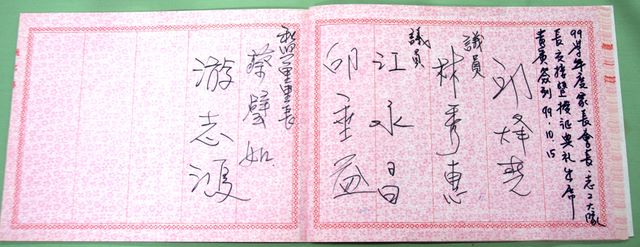 99學年度家長會長、志工大隊
長交接暨授證典禮 來席
貴賓簽到 99.10.15
邱烽堯
議員
林秀惠
議員
江永昌
邱垂益
里里長
蔡麗如
游志鴻